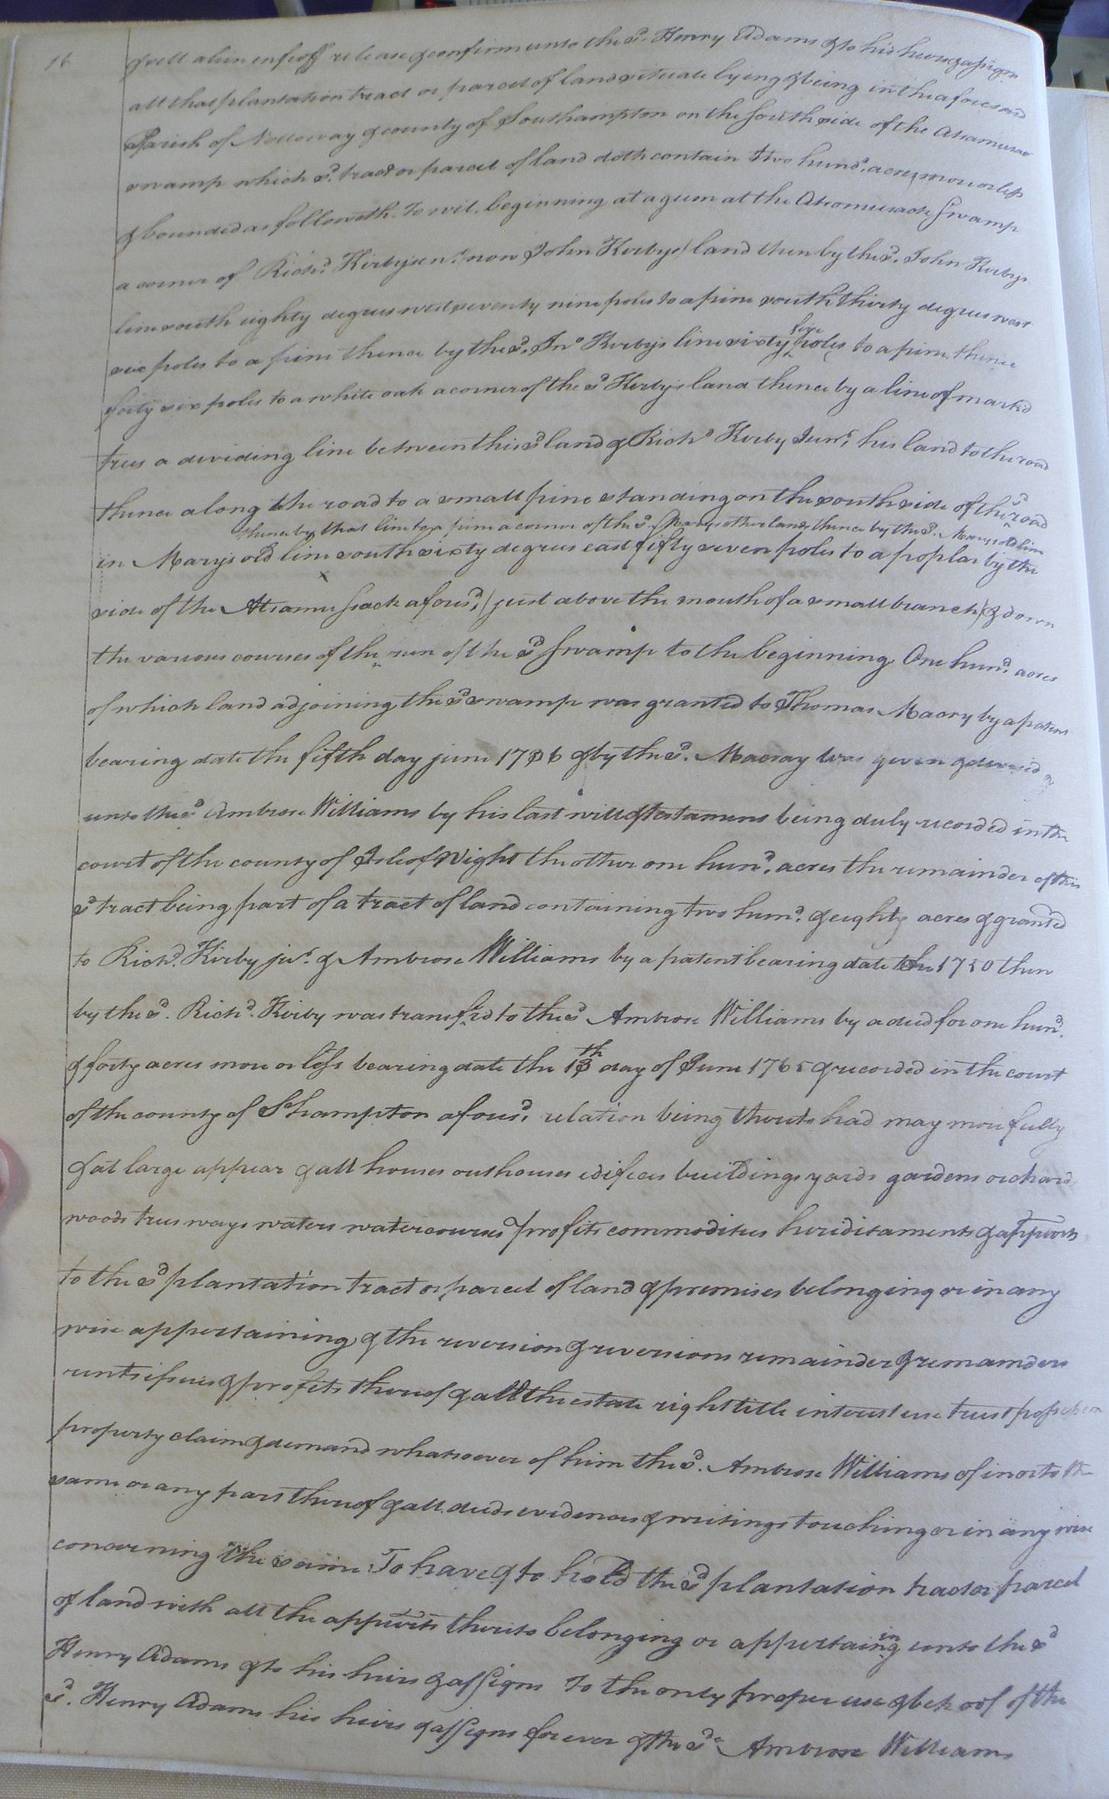 16
& sell alien enfeoff release & confirm unto the sd. Henry Adams & to his heirs & assigns
all that plantation tract or parcel of land situate lying & being in the aforesaid
Parish of Nottoway & county of Southampton on the south side of the Atsamusac
swamp which sd. tract or parcel of land doth contain two hund. acres more or less
& bounded as followeth. To wit, beginning at a gum at the Atsomusack Swamp
a corner of Richd. Kirby senr. (now John Kirbys) land then by the sd. John Kirbys
line south eighty degrees west seventy nine poles to a pine south thirty degrees west
six poles to a pine thence by the sd. Jno Kirbys line sixty five poles to a pine thence
forty six poles to a white oak a corner of the sd Kirbys land thence by a line of markd
trees a deviding line between this sd land & Richd Kirby Junr. his land to the road
thence along the road to a small pine standing on the south side of the sd road
thence by that line to a pine a corner of the sd. Marys other land, thence by the sd. Marys old line
in Marys old line south sixty degrees east fifty seven poles to a poplar by the
side of the Atsamusack aforesd, (just above the mouth of a small branch) & down
the various courses of the run of the sd Swamp to the beginning One hund. acres
of which land adjoining the sd swamp was granted to Thomas Macry by a patent
bearing date the fifth day june 17 & by the sd. Macray was given & devised
unto the sd Ambrose Williams by his last will & testament being duly recorded in the
court of the county of Isle of Wight the other one hund. acres the remainder of this
sd tract being part of a tract of land containing two hund. & eighty acres & granted
to Richd. Kirby jur. & Ambrose Williams by a patent bearing date the 1750 then
by the sd. Richd. Kirby was transfd to the sd Ambrose Williams by a deed for one hund.
& forty acres more or less bearing date the 13th day of June 1765 & recorded in the court
of the county of Sohampton aforesd, relation being thereto had may more fully
& at large appear & all houses outhouses edifices buildings yards gardens orchard
woods trees ways waters watercourses profits commodities heriditaments & appurts
to the sd plantation tract or parcel of land & premises belonging or in any
wise appertaining & the reversion & reversions remainder & remainders
rents issues & profits thereof & all the estate right title interest use trust possession
property claim & demand whatsoever of him the sd. Ambrose Williams of in or to the
same or any part thereof & all deeds evidences & writings touching or in any wise
concerning the same To have & to hold the sd plantation tract or parcel
of land with all the appurts thereto belonging or appertaining unto the sd
Henry Adams & to his heirs & assigns To the only proper use & behoof of the
sd. Henry Adams his heirs & assigns forever & the sd. Ambrose Williams